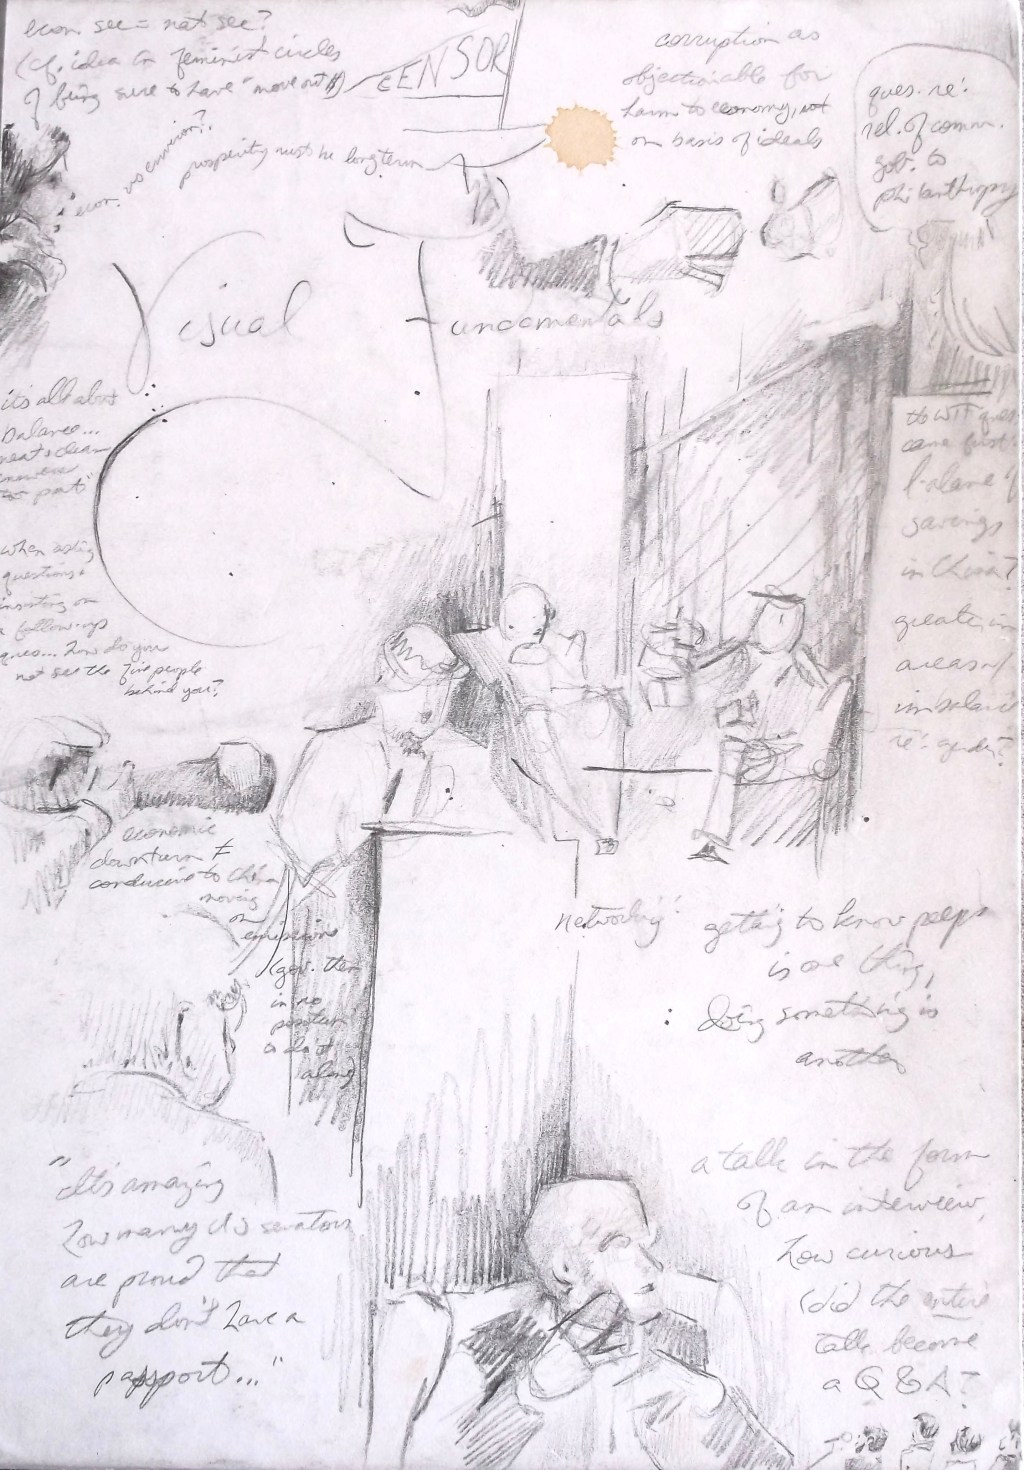 econ sec = nat sec?
(cf. idea in feminist circles
of being sure to have "move out $)
CENSOR
econ. vs environ?
prosperity must be longterm
corruption as
objectionable for
harm to economy, not
on basis of ideals
ques. re:
rel. of comm.
govt. to
philanthropy
Visual Fundamentals
it's all abt
balance...
neat & clean
when asking
questions &
insisting on
a follow-up
ques... how do you
not see the five people
behind you?
the WTF ques
came first:
balance of
savings
in China?
greater in
areas w/
imbalance
re: gender?
economic
downturn ≠
conducive to China
moving
on
emissions
(gov. then
in no
position
along)
networking: getting to know peeps
is one thing,
doing something is
another
"It's amazing
how many US senators
are proud that
they don't have a
passport..."
a talk in the form
of an interview,
how curious
(did the entire
talk become
a Q&A?